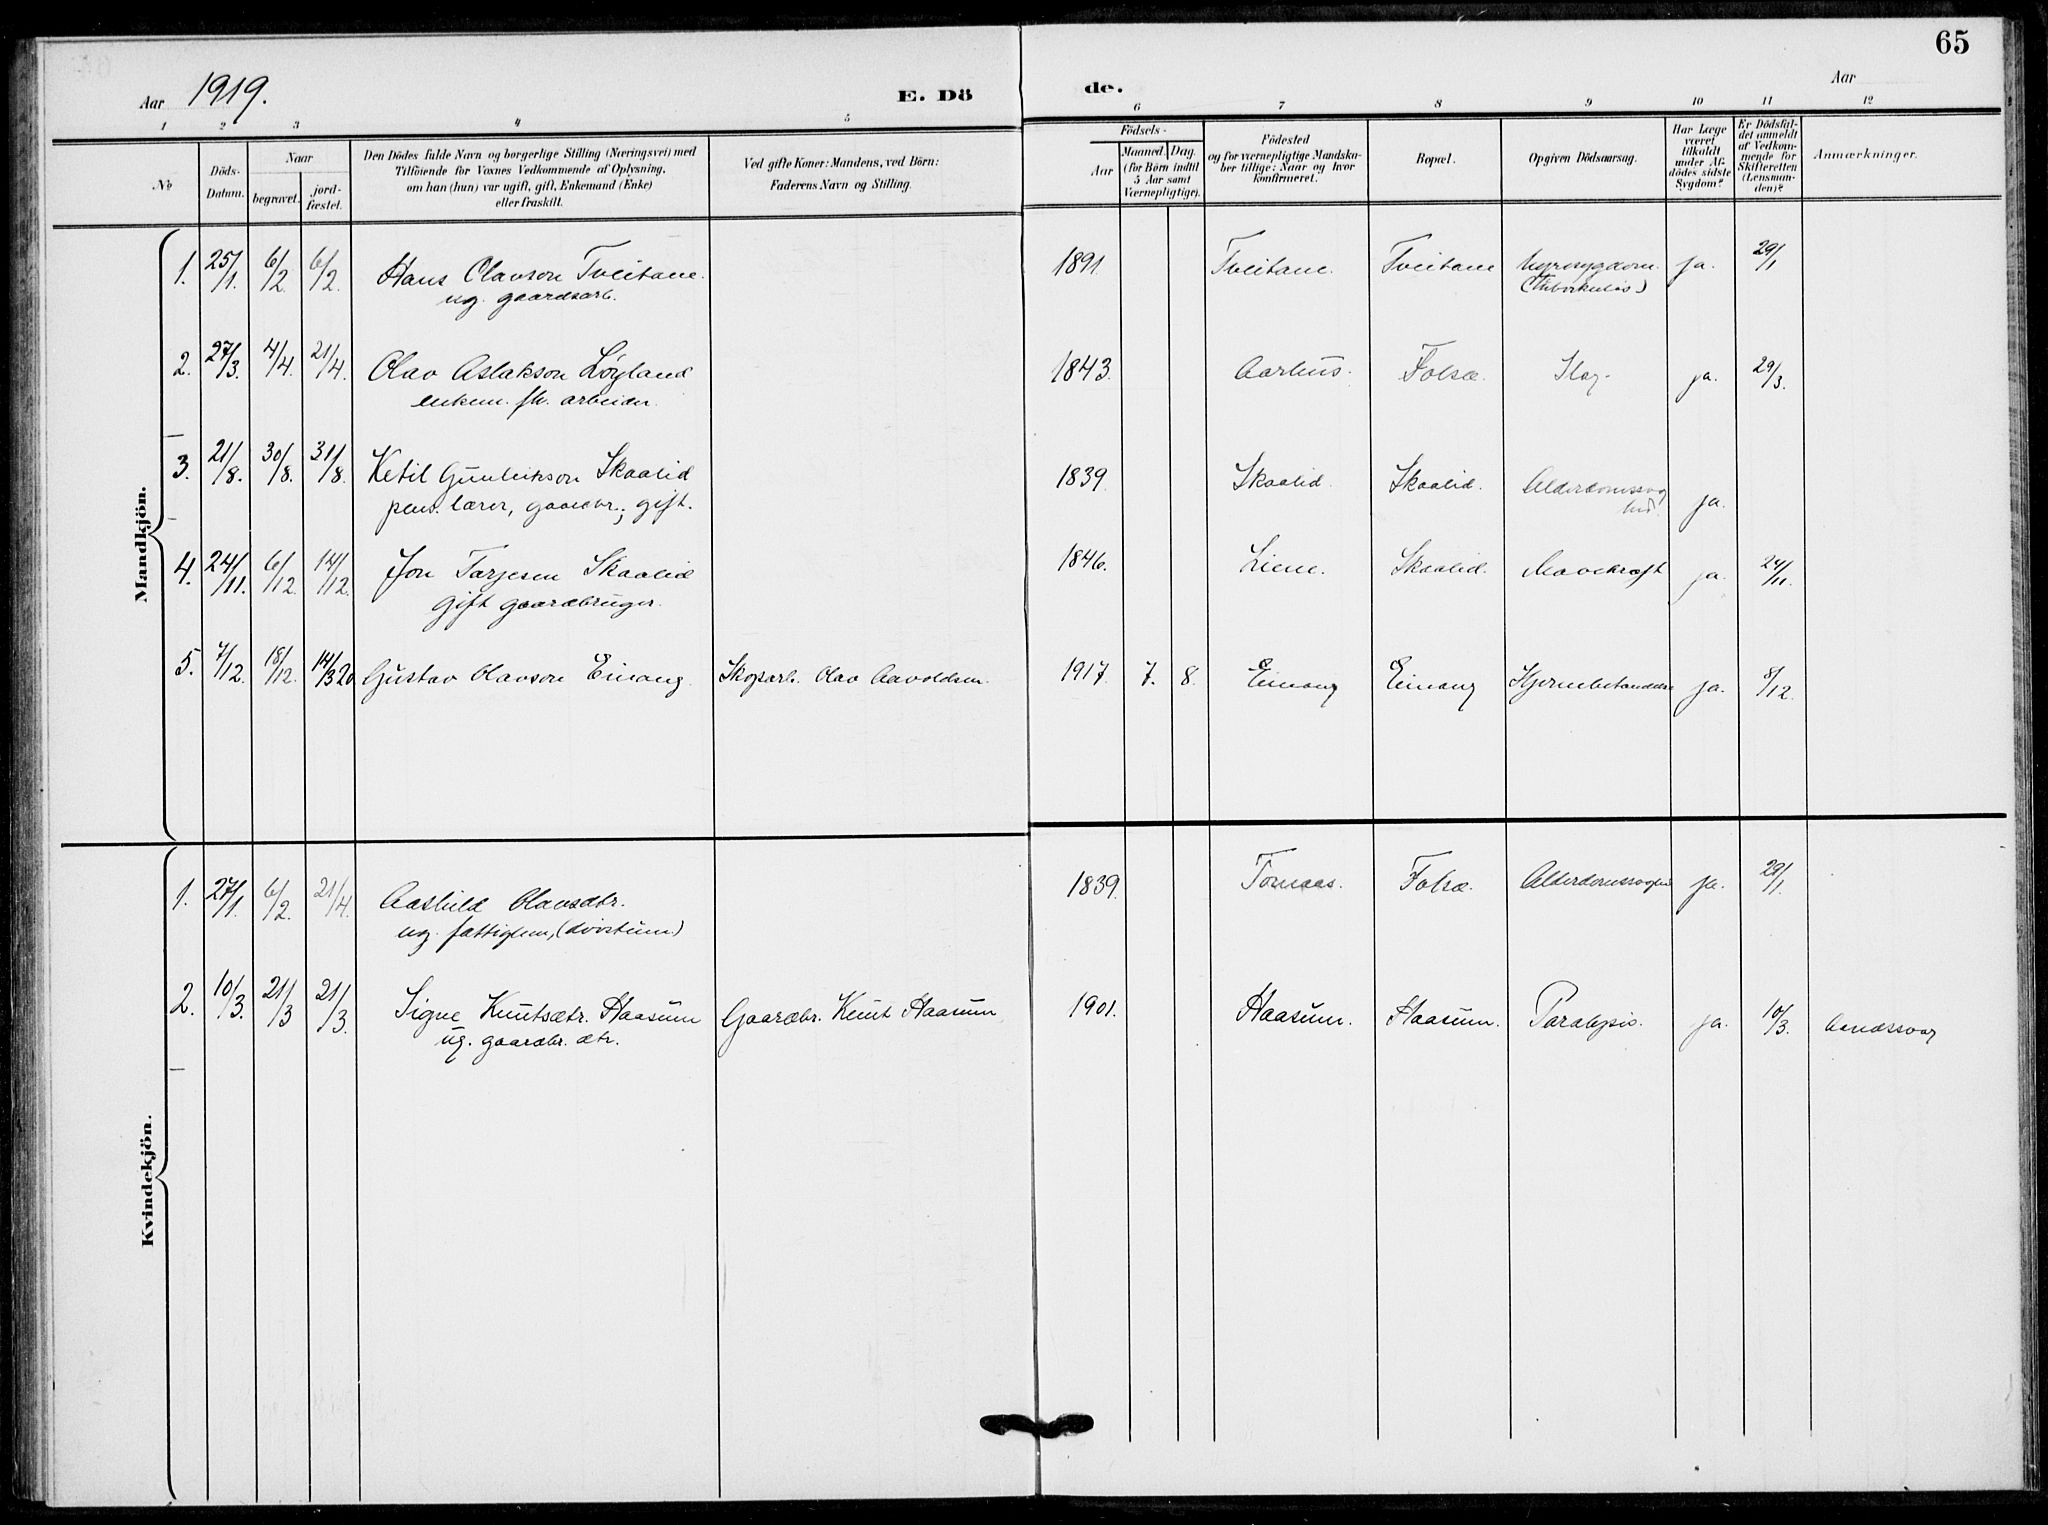 65
Aar 1919.
E. Döde.
Aar
1 2 3 4 5 6 7 8 9 10 11 12
№
Döds-Datum.
Naar
begravet.
jordfæstet.
Den Dödes fulde Navn og borgerlige Stilling (Næringsvei) med
Tilföiende for Voxnes Vedkommende af Oplysning,
om han (hun) var ugift, gift, Enkemand (Enke)
eller fraskilt.
Ved gifte Koner: Mandens, ved Börn:
Faderens Navn og Stilling.
Födsels-
Aar
Maaned. Dag.
(for Börn indtil
5 Aar samt
Værnepligtige).
Födested
og for værnepligtige Mandskaber tillige: Naar og hvor
konfirmeret.
Bopæl.
Opgiven Dödsaarsag.
Har Læge
været
tilkaldt
under Afdödes sidste
Sygdom?
Er Dödsfaldet anmeldt
af Vedkommende for
Skifteretten
(Lensmanden)?
Anmærkninger.
Mandkjön.
1. 25/1. 6/2. 6/2. Hans Olavson Tveitane. 1891 Tveitane. Tveitane ja. 29/1
ug. gaardsarb. (Tuberkulos)
2. 27/3. 4/4. 21/4. Olav Aslakson Løyland 1843. Aarhus. Folsæ. Slag. ja. 29/3.
enkem. fh. arbeider.
3. 21/8. 30/8. 31/8. Ketil Gunleikson Skaalid 1839. Skaalid. Skaalid. Alderdomssvaghed. ja.
pens. lærer, gaardbr.; gift.
4. 24/11. 6/12. 14/12. Jon Tarjesen Skaalid 1846. Liene. Skaalid. Mavekræft ja. 24/11.
gift gaardbruger.
5. 7/12. 18/12. 14/3 20 Gustav Olavson Einang. Skogsarb. Olav Aavoldsen. 1917. 7. 8. Einang Einang Hjernebetændelse ja. 8/12.
Kvindekjön.
1. 27/1. 6/2. 21/4. Aashild Olavsdtr. 1839. Tomaas. Folsæ. Alderdomssvaghed ja. 29/1.
ug. fattiglem,
2. 10/3. 21/3 21/3. Signe Knutsdtr. Haasum Gaardbr. Knut Haasum 1901. Haasum. Haasum. Paralysis. ja. 10/3. Aandssvag
ug. gaardbr. dtr.